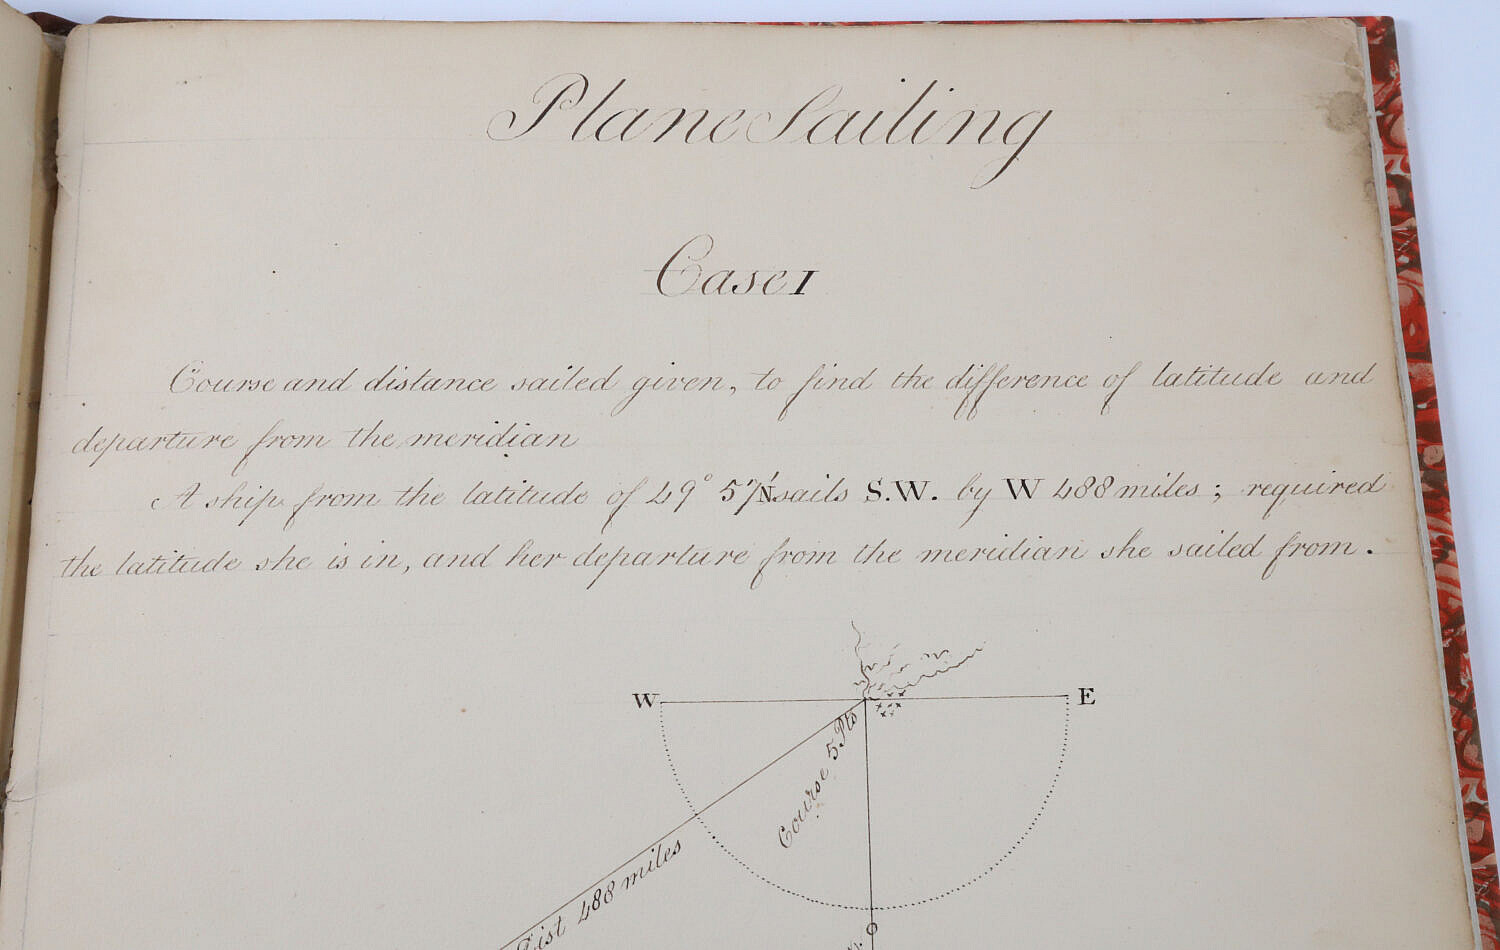 Plane Sailing
Case I
Course and distance sailed given, to find the difference of latitude and
departure from the meridian
A ship from the latitude of 49° 57' N sails S.W. by W 488 miles; required
the latitude she is in, and her departure from the meridian she sailed from.
W
E
Course 5 Pts
Dist 488 miles